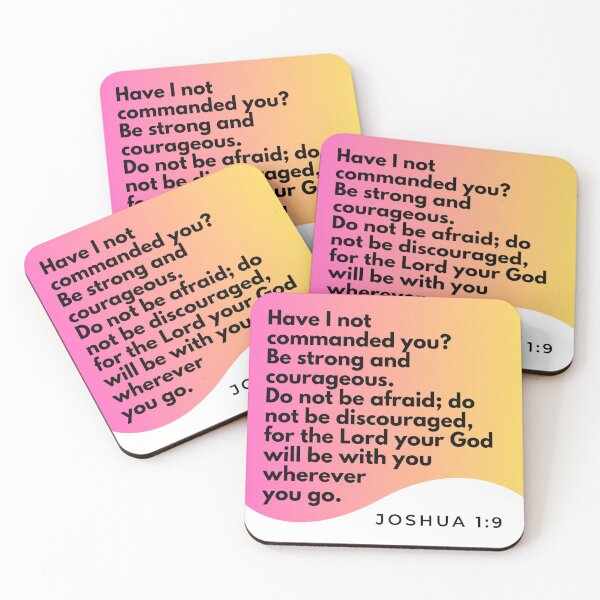 Have I not
commanded you?
Be strong and
courageous.
Do not be afraid; do
not be discouraged,
for the Lord your God
Have I not
commanded you?
Be strong and
courageous.
Do not be afraid; do
not be discouraged,
for the Lord your God
will be with you
wherever
1:9
Have I not
commanded you?
Be strong and
courageous.
Do not be afraid; do
not be discouraged,
for the Lord your God
will be with you
wherever
you go.
JO
Have I not
commanded you?
Be strong and
courageous.
Do not be afraid; do
not be discouraged,
for the Lord your God
will be with you
wherever
you go.
JOSHUA 1:9